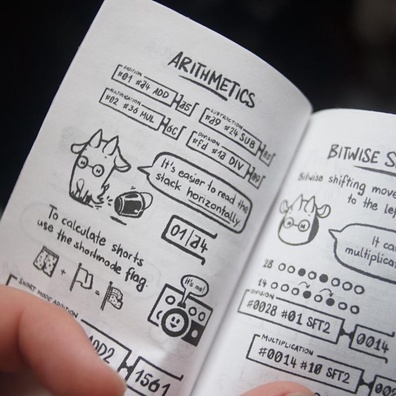 ARITHMETICS
ADDITION
#01 #d4 ADD d5
SUBTRACTION
#d9 #24 SUB
MULTIPLICATION
#02 #36 MUL 6C
DIVISION
#fd #1a DIV
It's easier to read the
stack horizontally
01 d4
To calculate shorts
use the shortmode flag.
It's me!
SHORT MODE ADDITION
ADD2 1561
BITWISE S
Bitwise shifting move
to the le
It ca
multiplica
28
14
DIVISION
#0028 #01 SFT2 0014
MULTIPLICATION
#0014 #10 SFT2